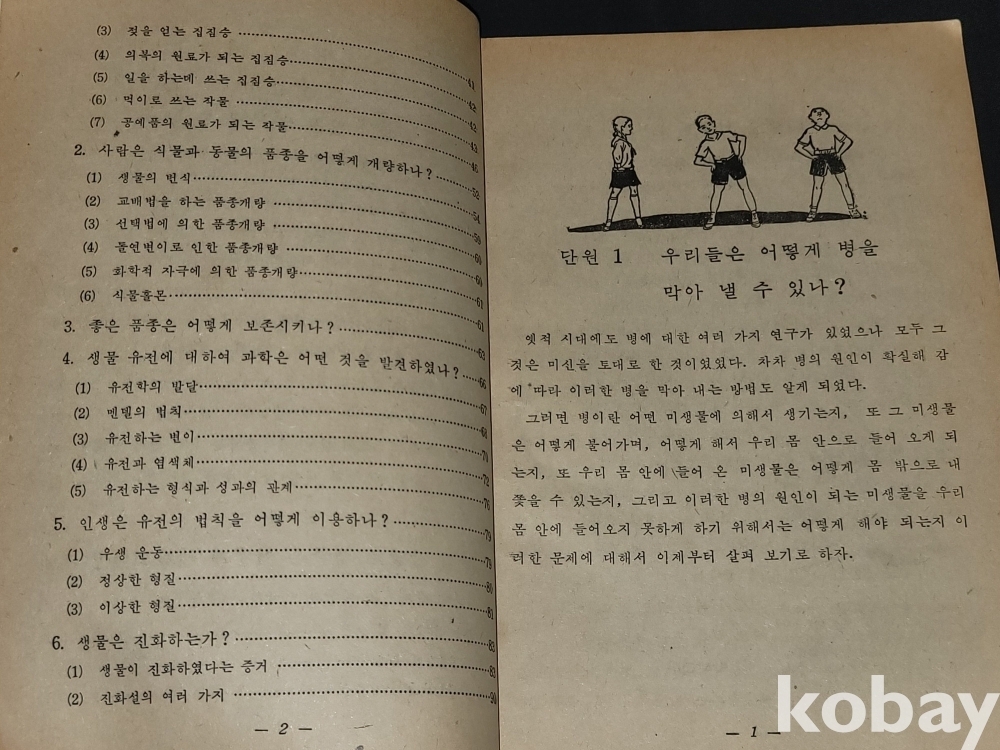 (3) 젖을 얻는 집짐승 41
(4) 의복의 원료가 되는 집짐승 42
(5) 일을 하는데 쓰는 집짐승 43
(6) 먹이로 쓰는 작물 43
(7) 공예품의 원료가 되는 작물 46
2. 사람은 식물과 동물의 품종을 어떻게 개량하나? 53
(1) 생물의 번식 54
(2) 교배법을 하는 품종개량 59
(3) 선택법에 의한 품종개량 60
(4) 돌연변이로 인한 품종개량 60
(5) 화학적 자극에 의한 품종개량 61
(6) 식물홀몬 61
3. 좋은 품종은 어떻게 보존시키나? 63
4. 생물 유전에 대하여 과학은 어떤 것을 발견하였나? 66
(1) 유전학의 발달 67
(2) 멘델의 법칙 68
(3) 유전하는 변이 70
(4) 유전과 염색체 72
(5) 유전하는 형식과 성과의 관계 76
5. 인생은 유전의 법칙을 어떻게 이용하나? 79
(1) 우생 운동 79
(2) 정상한 형질 80
(3) 이상한 형질 81
6. 생물은 진화하는가? 83
(1) 생물이 진화하였다는 증거 83
(2) 진화설의 여러 가지 90
— 2 —
단원 1 우리들은 어떻게 병을
막아 낼 수 있나?
옛적 시대에도 병에 대한 여러 가지 연구가 있었으나 모두 그
것은 미신을 토대로 한 것이었었다. 차차 병의 원인이 확실해 감
에 따라 이러한 병을 막아 내는 방법도 알게 되었다.
그러면 병이란 어떤 미생물에 의해서 생기는지, 또 그 미생물
은 어떻게 붙어가며, 어떻게 해서 우리 몸 안으로 들어 오게 되
는지, 또 우리 몸 안에 들어 온 미생물은 어떻게 몸 밖으로 내
쫓을 수 있는지, 그리고 이러한 병의 원인이 되는 미생물을 우리
몸 안에 들어오지 못하게 하기 위해서는 어떻게 해야 되는지 이
러한 문제에 대해서 이제부터 살펴 보기로 하자.
— 1 —
kobay